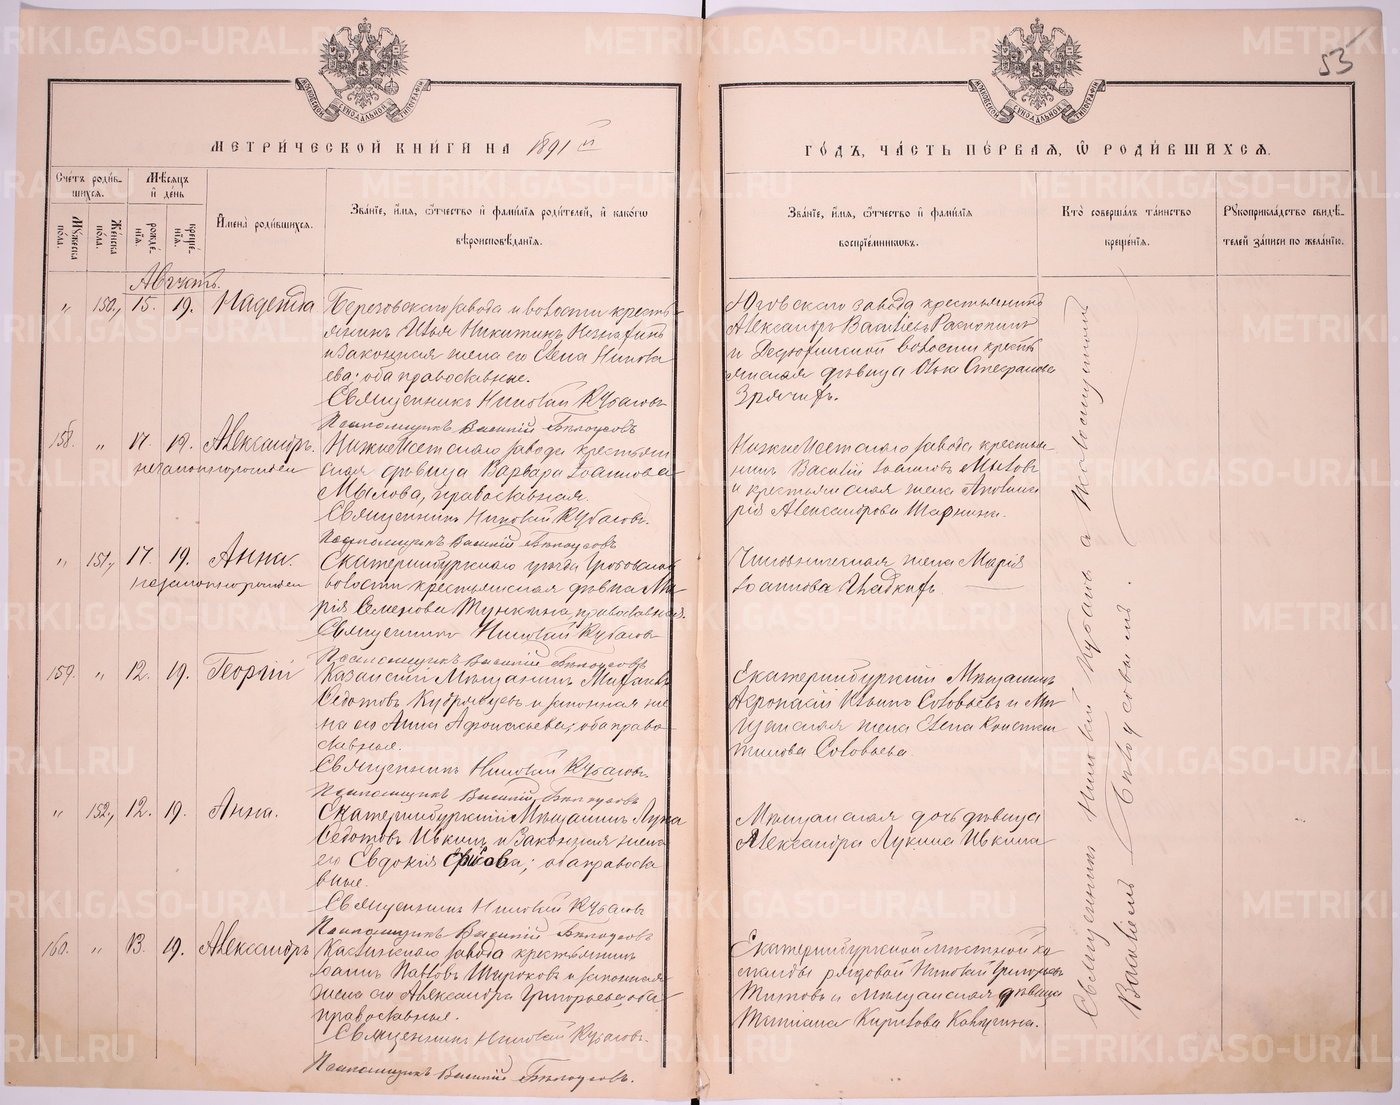 53
МЕТРИ́ЧЕСКОЙ КНИ́ГИ НА 1891 й
ГО́ДЪ, ЧА́СТЬ ПЕ́РВАЯ, Ѿ РОДИ́ВШИХСЯ.
Сче́тъ роди́вшихся.
Мѣ́сяцъ и де́нь
Мꙋ́жеска по́ла.
Же́нска по́ла.
рожде́нїѧ.
креще́нїѧ.
Имена̀ роди́вшихся.
Зва́нїе, и́мѧ, ѻ҆́тчество и҆ фами́лїѧ роди́телей, и҆ како́гѡ
вѣроисповѣ́данїѧ.
Зва́нїе, и́мѧ, ѻ҆́тчество и҆ фами́лїѧ
воспрїе́мникѡвъ.
Кто̀ соверша́лъ та́инство
креще́нїѧ.
Рꙋкоприкла́дство свидѣ́-
телей за́писи по жела́нїю.
Августъ.
„ 150., 15. 19. Надежда
Березовскаго завода и волости кресть-
янинъ Илья Никитинъ
и законная жена его Елена Никола
ева; оба православные.
Священникъ Николай Кубасовъ
Псаломщикъ Василій Бѣлоусовъ
Юговскаго завода крестьянинъ
Александръ Васильевъ Распопинъ
и волости кресть
янская дѣвица Ольга Стефанова
158. „ 17. 19. Александръ.
незаконнорожден
Нижнеисетскаго завода крестьян
ская дѣвица Варвара Іоаннова
Мылова, православная.
Священникъ Николай Кубасовъ.
Псаломщикъ Василій Бѣлоусовъ
Нижнеисетскаго завода крестья
нинъ Василій Іоанновъ Мыловъ
и крестьянская жена Аполлина
рія Александрова
„ 151., 17. 19. Анна.
незаконнорожден
Екатеринбургскаго уѣзда Гробовской
волости крестьянская дѣвка Ма
рія Семенова православная.
Священникъ Николай Кубасовъ
Псаломщикъ Василій Бѣлоусовъ
Чиновническая жена Марія
Іоаннова
159. „ 12. 19. Георгій
Казанскій Мѣщанинъ Михаилъ
Федотовъ Кудрявцевъ и законная же
на его Анна Афонасьева; оба право
славные.
Священникъ Николай Кубасовъ
Псаломщикъ Василій Бѣлоусовъ
Екатеринбургскій Мѣщанинъ
Афонасій Ильинъ Соловьевъ и Мѣ
щанская жена Елена Констан
тинова Соловьева
„ 152., 12. 19. Анна.
Екатеринбургскій Мѣщанинъ Лука
Федотовъ Ивкинъ и Законная жена
его Евдокія оба правосла
вные.
Священникъ Николай Кубасовъ
Псаломщикъ Василій Бѣлоусовъ
Мѣщанская дочь дѣвица
Александра Лукина Ивкина
160. „ 13. 19. Александръ
Каслинскаго завода крестьянинъ
Іоаннъ Павловъ Широковъ и законная
жена его Александра Григорьева; оба
православные.
Священникъ Николай Кубасовъ.
Псаломщикъ Василій Бѣлоусовъ.
Екатеринбургской мѣстной ко
манды рядовой Николай Григорьевъ
Титовъ и мѣщанская дѣвица
Татіана Кирилова
Священникъ Николай Кубасовъ а Псаломщикъ
Василій Бѣлоусовымъ.